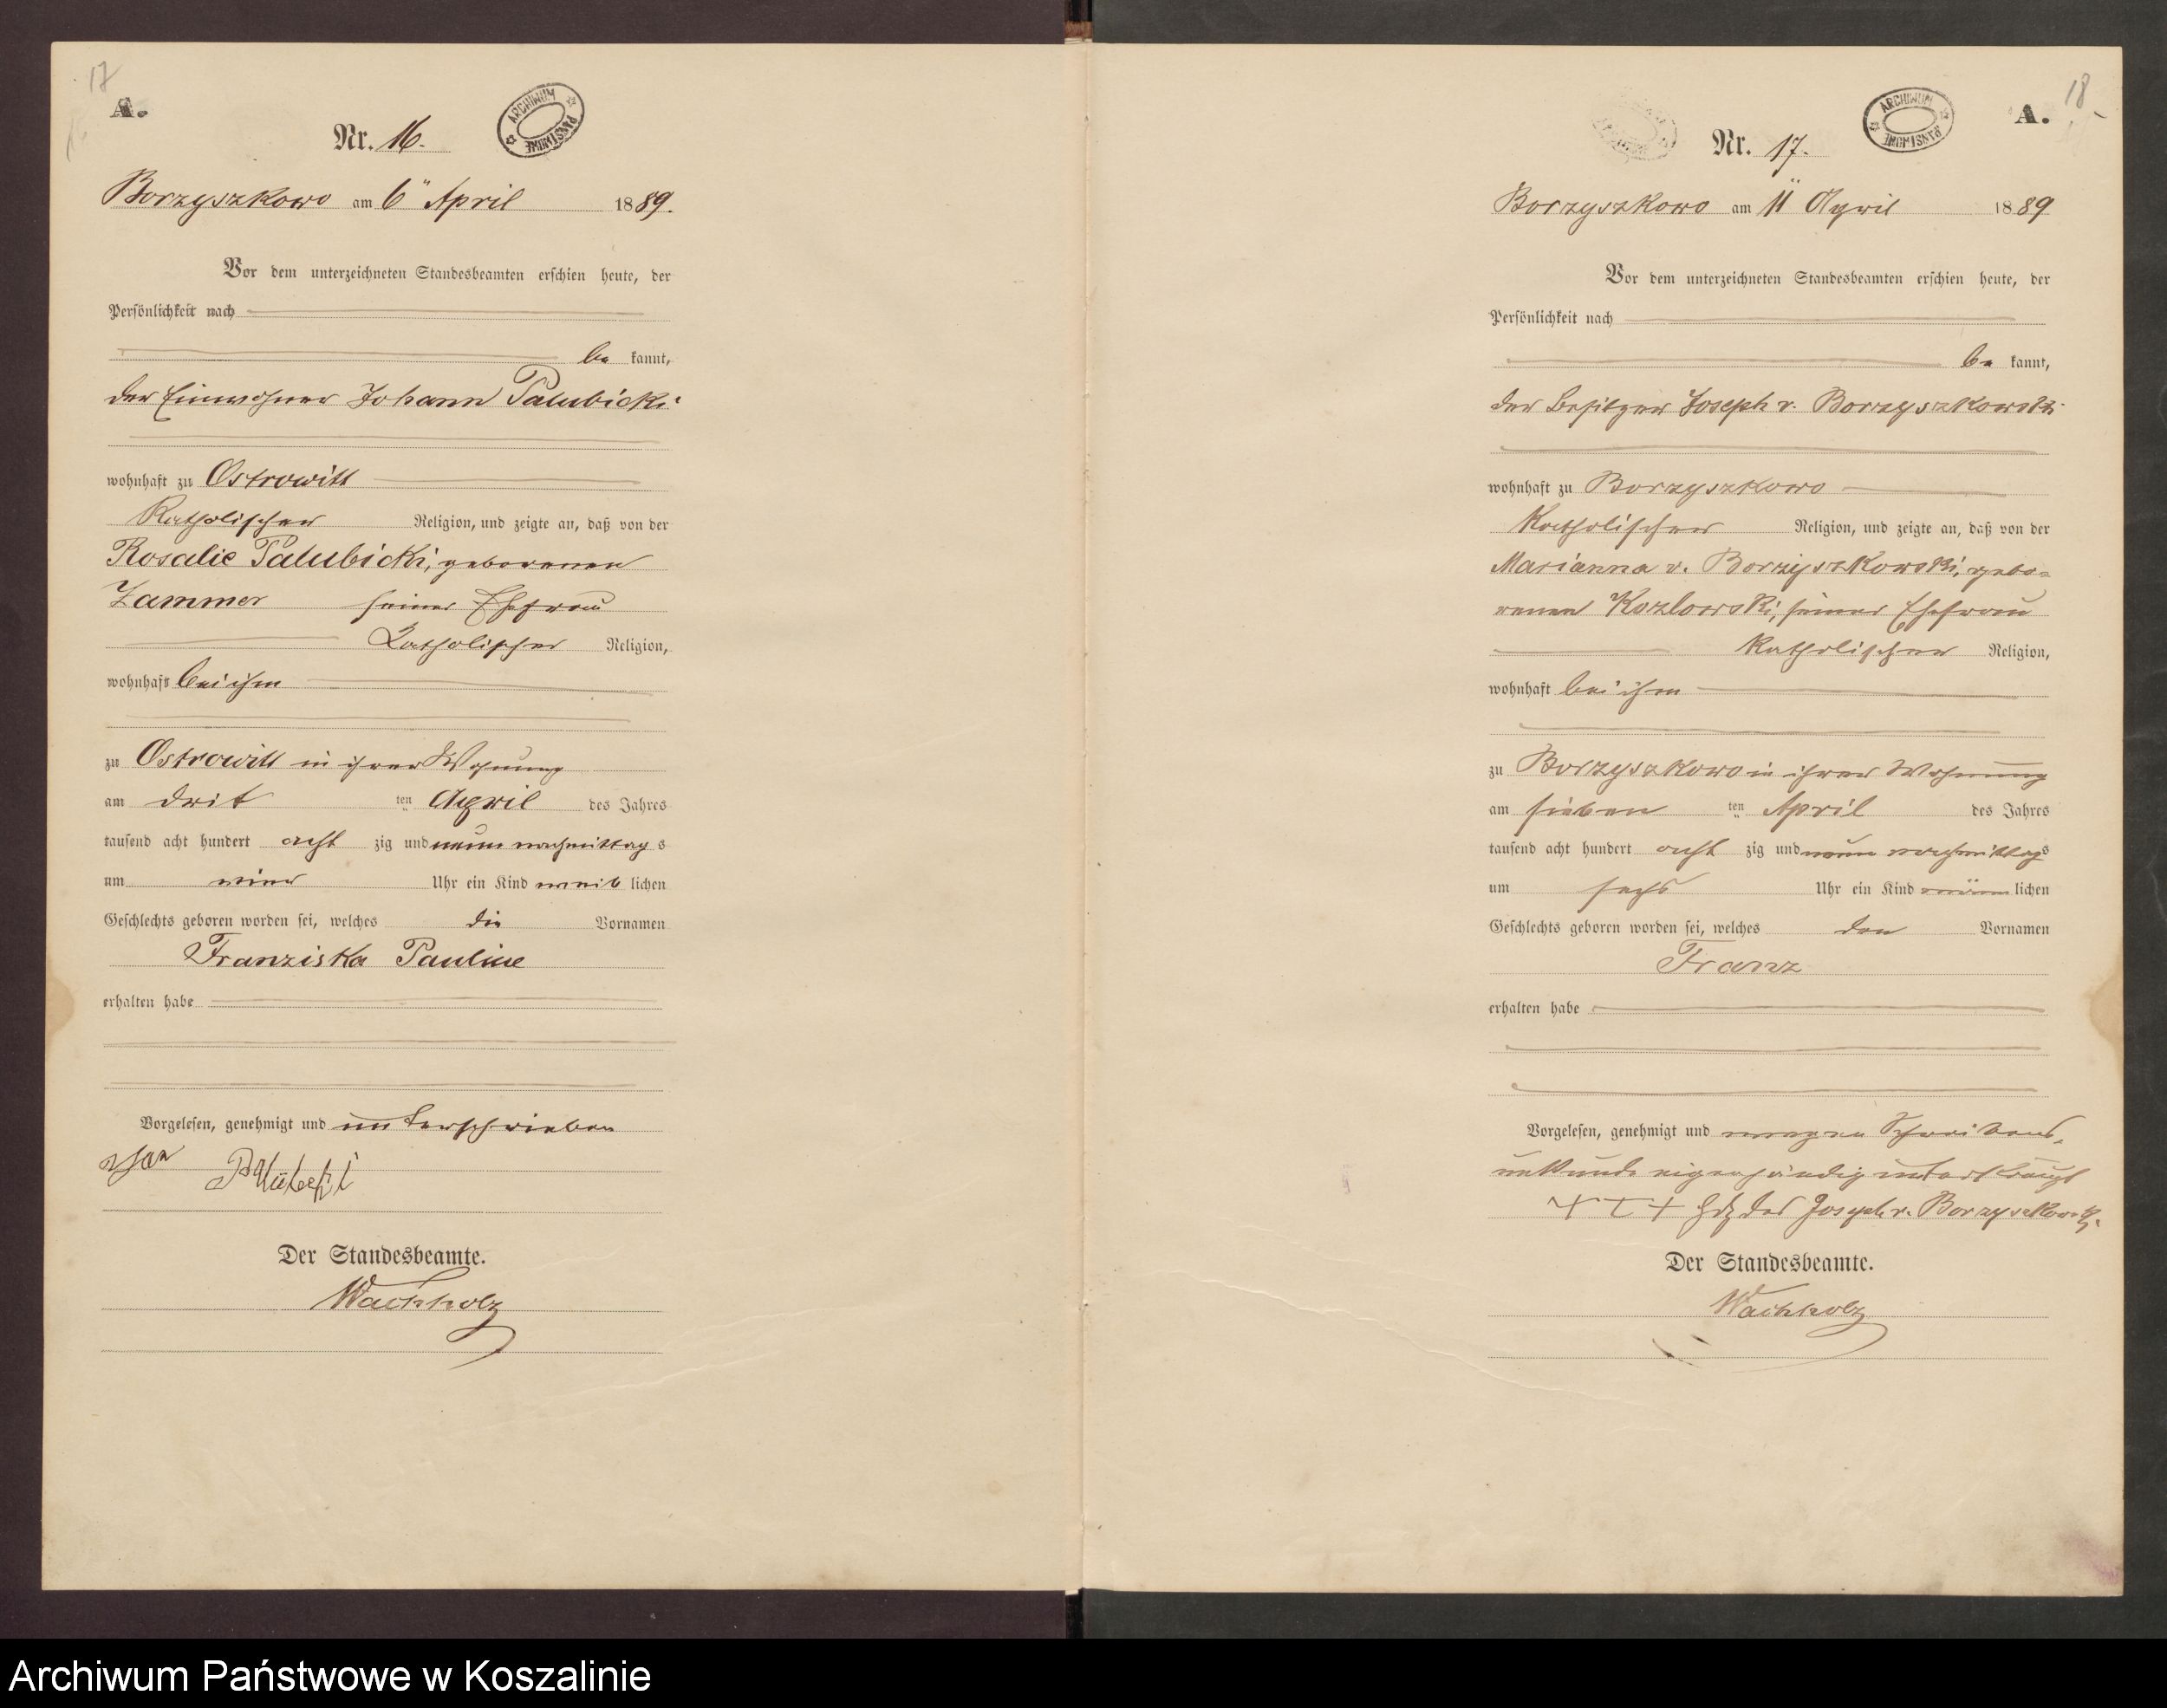 17
A.
Nr. 16.
ARCHIWUM PAŃSTWOWE
Borzyszkowo am 6" April 1889.
Vor dem unterzeichneten Standesbeamten erschien heute, der
Persönlichkeit nach
be kannt,
der Einwohner Johann Palubicki
wohnhaft zu Ostrowitt
Katholischer Religion, und zeigte an, daß von der
Rosalie Palubicki, geborenen
Zammer seiner Ehefrau
Katholischer Religion,
wohnhaft bei ihm
zu Ostrowitt in ihrer Wohnung
am drit ten April des Jahres
tausend acht hundert acht zig und neun nachmittag s
um vier Uhr ein Kind weib lichen
Geschlechts geboren worden sei, welches die Vornamen
Franziska Pauline
erhalten habe
Vorgelesen, genehmigt und unterschrieben
Der Standesbeamte.
Wachholz
18
A.
ARCHIWUM PAŃSTWOWE
Nr. 17.
Borzyszkowo am 11" April 1889
Vor dem unterzeichneten Standesbeamten erschien heute, der
Persönlichkeit nach
be kannt,
der Besitzer Joseph v. Borzyszkowski
wohnhaft zu Borzyszkowo
Katholischer Religion, und zeigte an, daß von der
Marianna v. Borzyszkowski, gebo-
renen Kozlowski, seiner Ehefrau
Katholischer Religion,
wohnhaft bei ihm
zu Borzyszkowo in ihrer Wohnung
am sieben ten April des Jahres
tausend acht hundert acht zig und neun nachmittags
um sechs Uhr ein Kind männ lichen
Geschlechts geboren worden sei, welches den Vornamen
Franz
erhalten habe
Vorgelesen, genehmigt und wegen Schreibens-
unkunde eigenhändig unterkreuzt
+++ Hdz des Joseph v. Borzyszkowski.
Der Standesbeamte.
Wachholz
Archiwum Państwowe w Koszalinie